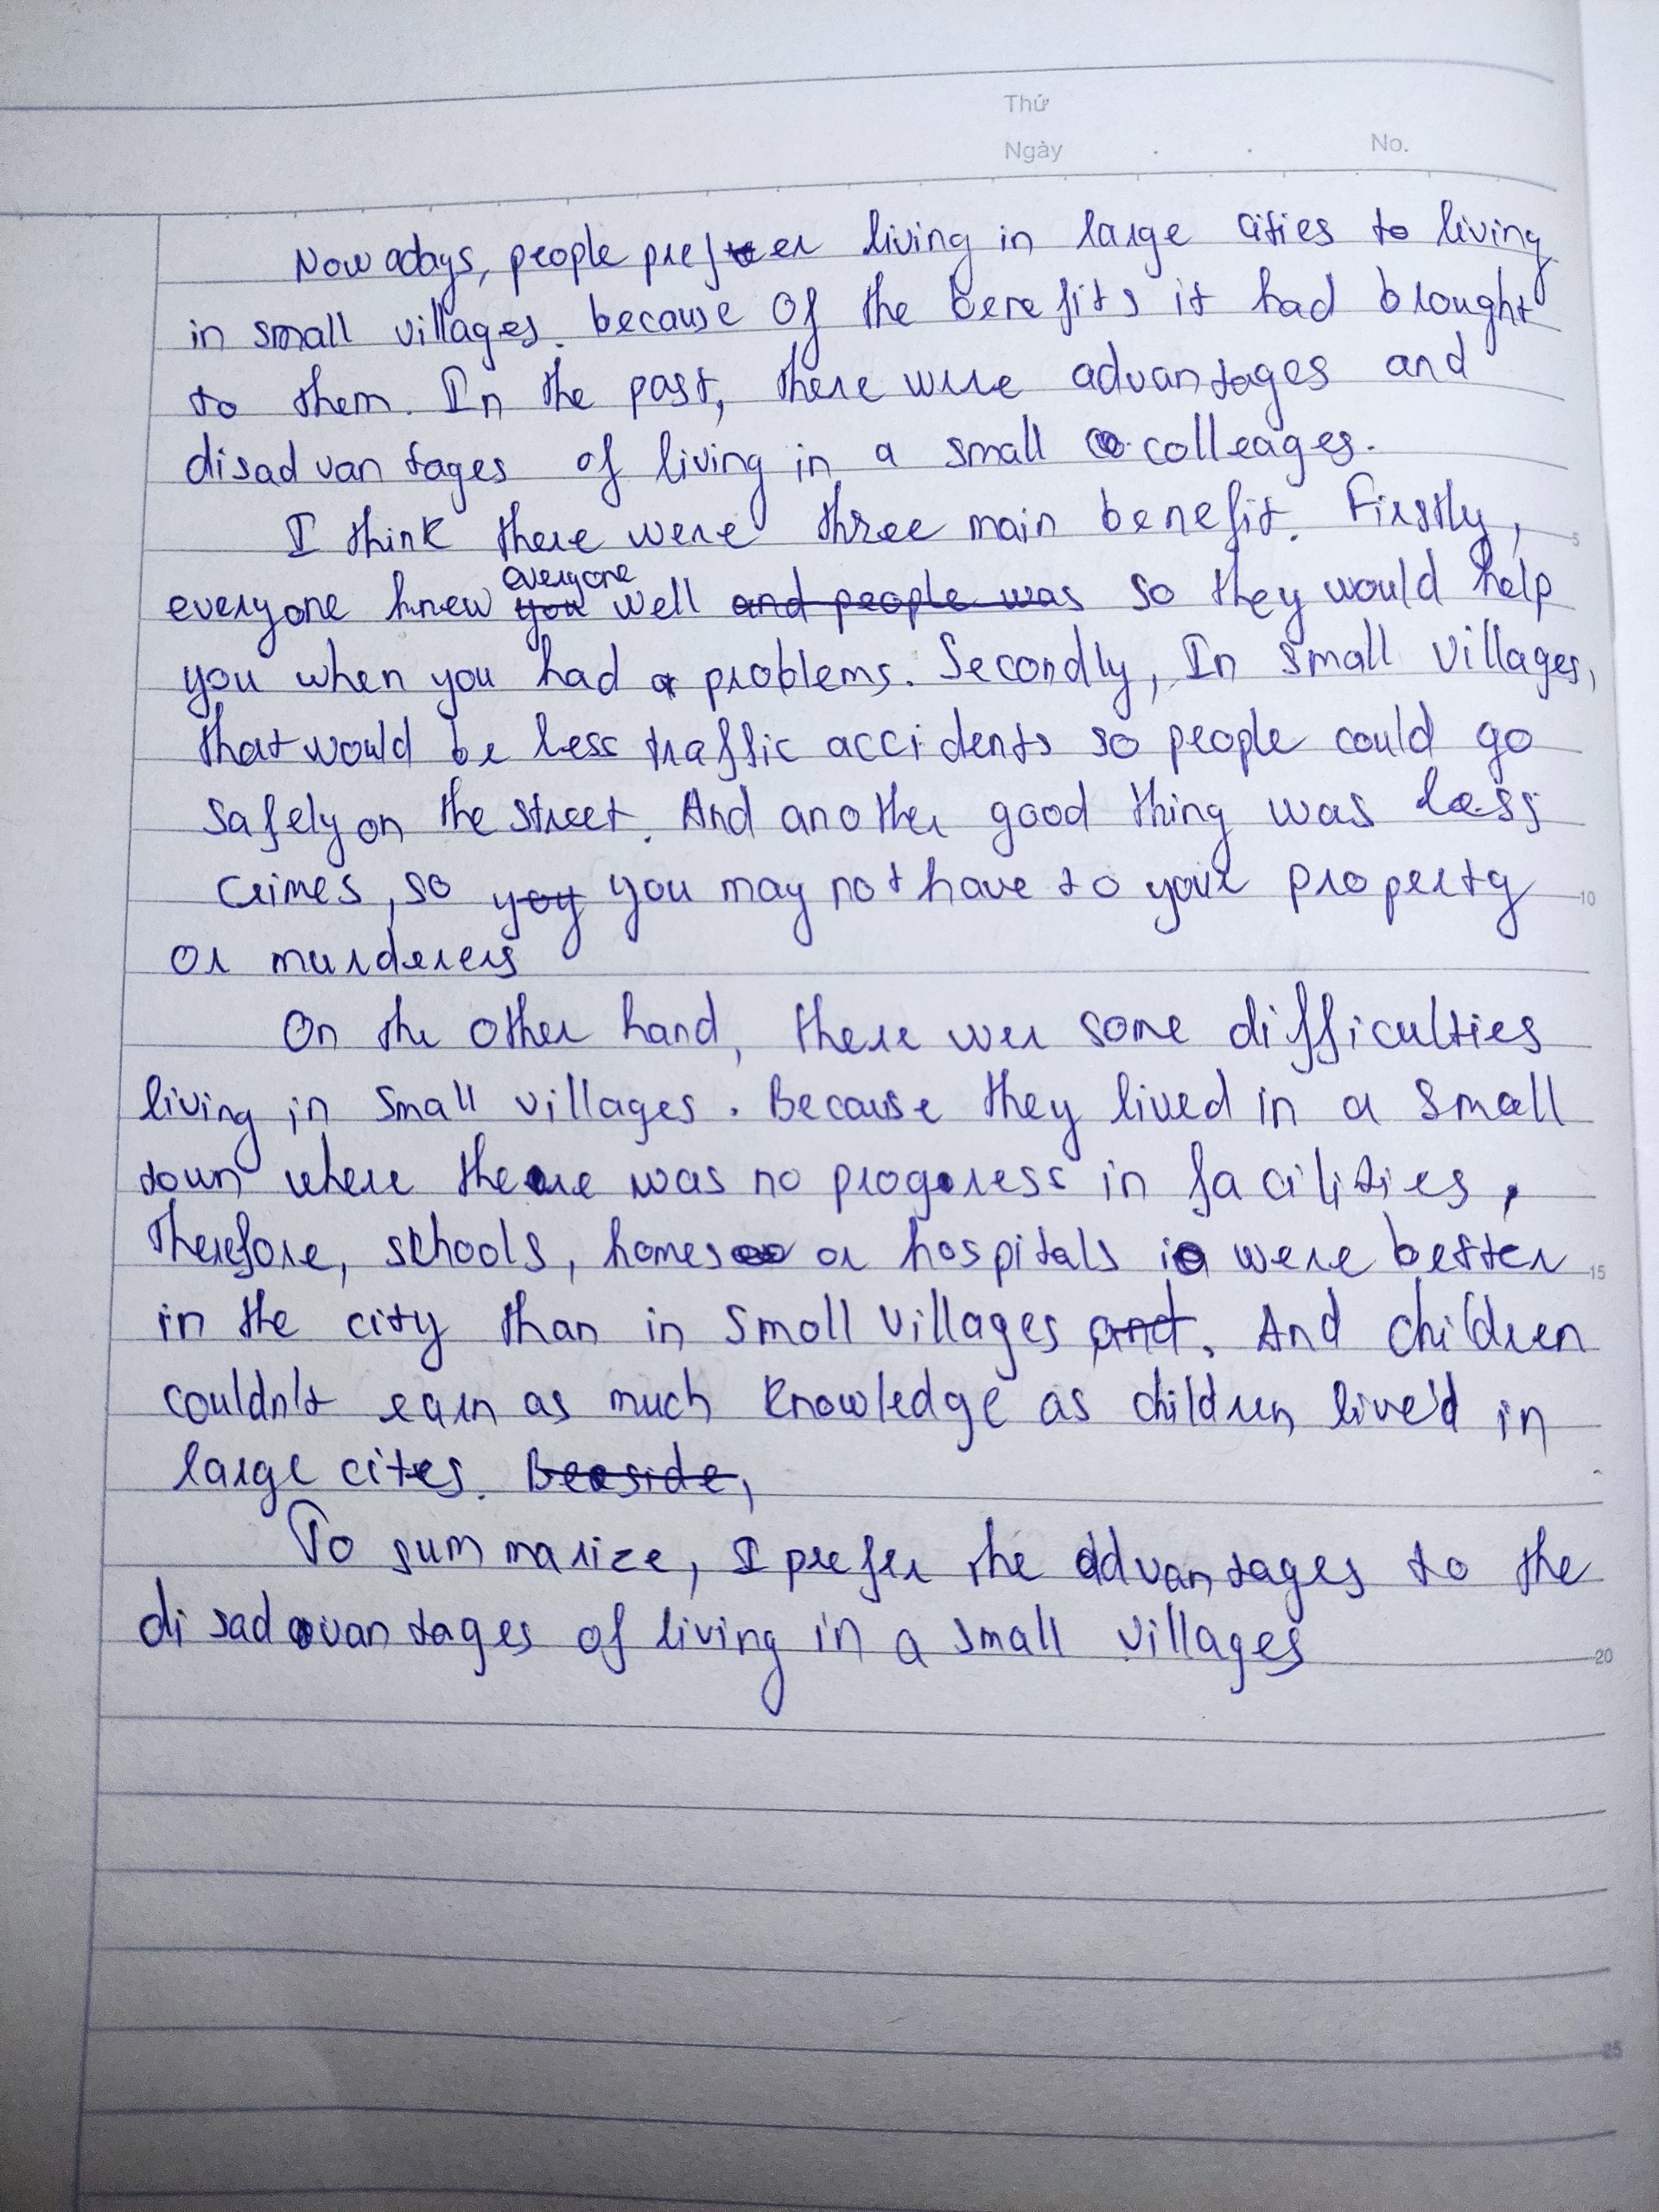 Thứ
Ngày . . No.
Nowadays, people prefer living in large cities to living
in small villages. because Of the benefits it had brought
to them. In the past, there were advantages and
disadvantages of living in a small colleages.
I think there were three main benefit. Firstly,
everyone
everyone knew you well and people was so they would help
you when you had a problems. Secondly, In small villages,
that would be less traffic accidents so people could go
safely on the street. And another good thing was less
crimes, so yoy you may not have to your property
or murderers
On the other hand, there wer some difficulties
living in small villages. Because they lived in a small
town where there was no progress in facilities,
therefore, schools, homes or hospitals were better
in the city than in small villages and. And children
couldn't earn as much knowledge as children lived in
large cites. Beaside,
To summarize, I prefer the advantages to the
disadvantages of living in a small villages
5
10
15
20
25